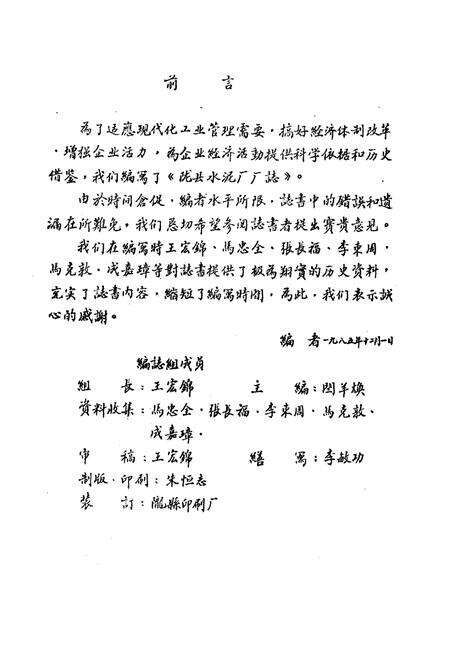 前 言
為了适應現代化工业管理需要，搞好经济体制改革
，增强企业活力，為企业经济活動提供科学依據和历史
借鉴，我们編写了《陇县水泥厂厂誌》。
由於時间倉促，编者水平所限，誌書中的错誤和遗
漏在所難免，我们恳切希望参阅誌書者提出寳貴意见。
我们在編寫時王宏錦、馬忠全、張長福、李東周、
馬克敦、成嘉璋等對誌書提供了极為翔實的历史资料，
充实了誌書内容，缩短了编寫時間，為此，我们表示誠
心的感謝。
編 者一九八五年十二月一日
編誌組成员
組 長：王宏錦 主 編：閔羊煥
资料收集：馬忠全、張長福、李東周、馬克敦、
成嘉璋．
审 稿：王宏錦 繕 寫：李敏功
制版·印刷：朱恒志
装 訂：隴縣印刷厂